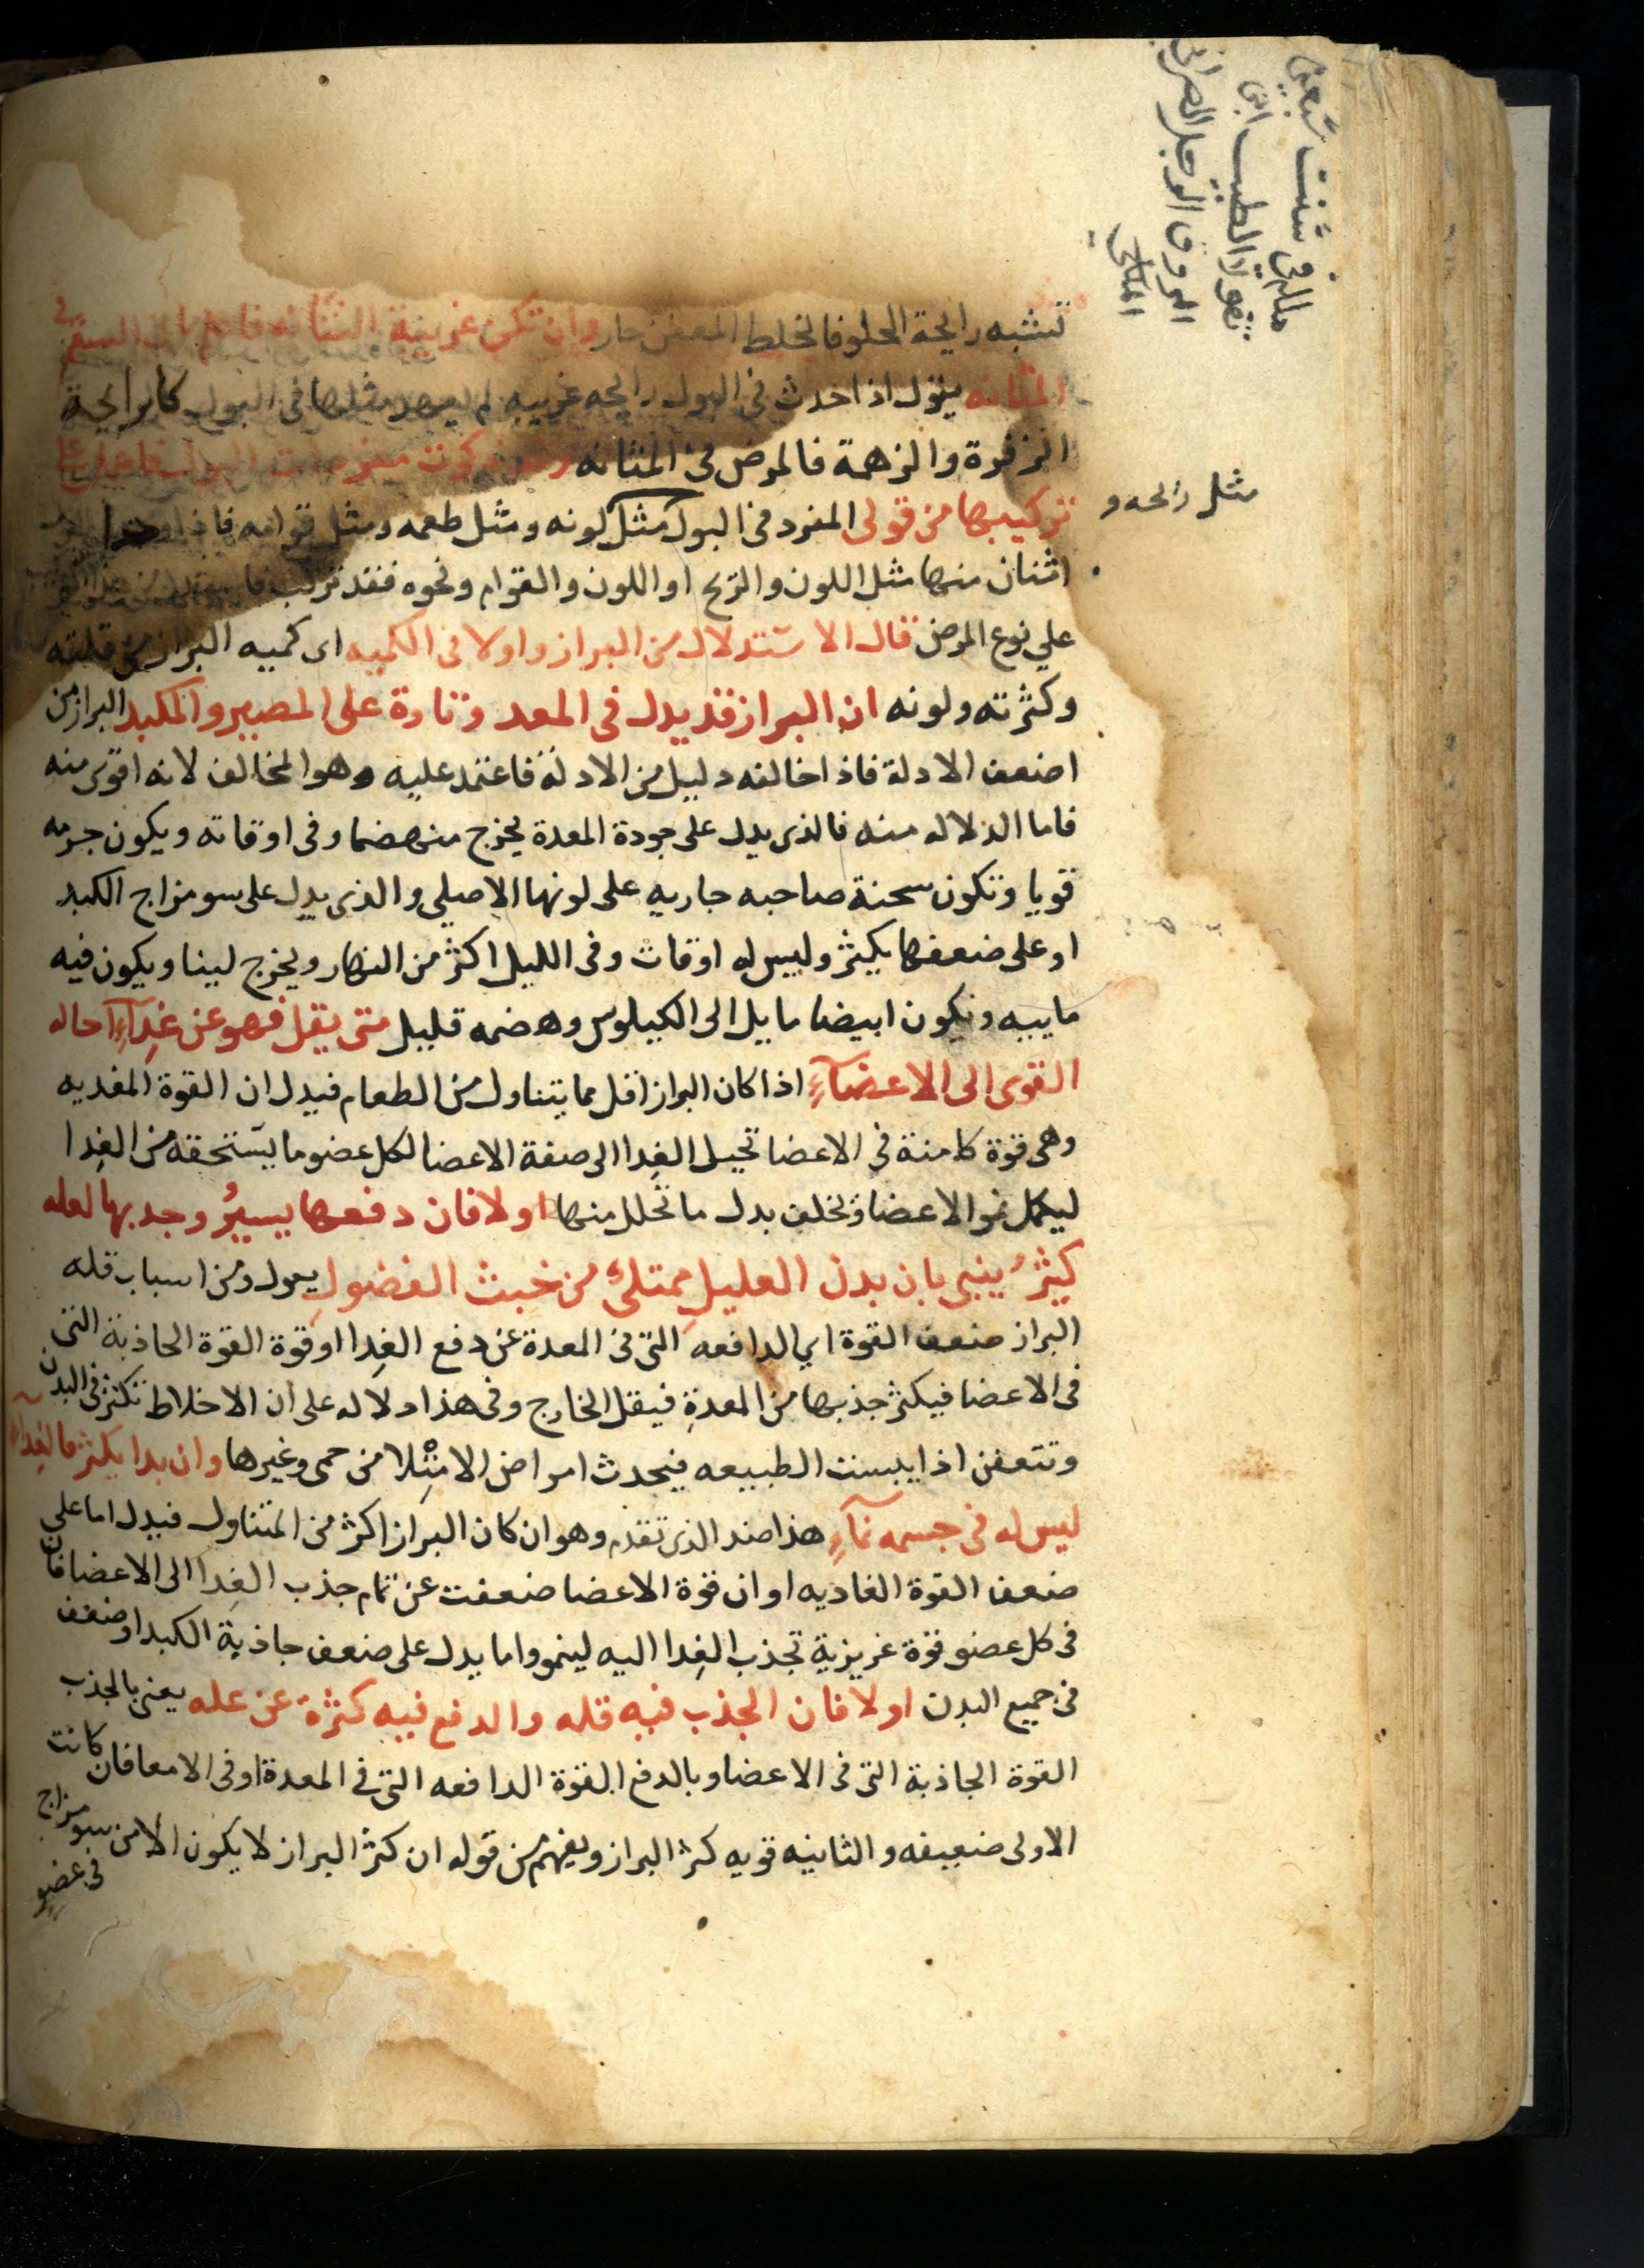 تشبه رايحة الحلو فالخلط المعفن حار وان تكن غريبة النتانه فاعلم بان السقم في
المثانه يقول اذا حدث في البول رايحه غريبه لم يعهد مثلها في البول كالرايحة
الزفرة والزهمة فالمرض في المثانه
تركيبها من قولى المفرد في البول مثل لونه ومثل طعمه ومثل قوامه فاذا
مثل رايحه و
اثنان منها مثل اللون والريح او اللون والقوام ونحوه فقد تركب
علي نوع المرض قال الاستدلال من البراز واولا فى الكميه اى كميه البراز من قلته
وكثرته ولونه ان البراز قد يدل فى المعد وتارة على المصير والكبد البراز من
اضعف الادلة فاذا خالفه دليل من الادلة فاعتمد عليه وهو المخالف لانه اقوى منه
فاما الدلاله منه فالذى يدل على جودة المعدة يخرج منهضما وفى اوقاته ويكون جرمه
قويا وتكون سحنة صاحبه جاريه على لونها الاصيلي والذى يدل على سو مزاج الكبد
او على ضعفها يكثر وليس له اوقات وفى الليل اكثر من النهار ويخرج لينا ويكون فيه
ماييه ويكون ابيضا مايل الى الكيلوس وهضمه قليل متى يقل فهو عن غِدآءٍ احاله
القوى الى الاعضآءِ اذا كان البراز اقل مما يتناول من الطعام فيدل ان القوة المغديه
وهى قوة كامنة في الاعضا تحيل الغِدا الى صفة الاعضا لكل عضو ما يستحقه من الغِدا
ليكمل نمو الاعضا وتخلف بدل ما تحلل منها اولا فان دفعها يسيرُ وجدبها لعله
كثيرُ ينبى بان بدن العليلِ ممتلئ من خبث الفضولِ يعول ومن اسباب قله
البراز ضعف القوة اي الدافعه التى فى المعدة عن دفع الغِدا او قوة القوة الجاذبة التى
فى الاعضا فيكثر جذبها من المعدةِ فيقل الخارج وفى هذا دلاله على ان الاخلاط تكثر فى البدن
وتتعفن اذا يبست الطبيعه فيحدث امراض الامتلا من حمى وغيرها وان بدا يكثر فالغِداء
ليس له فى جسمه نمآءِ هذا ضد الذى تقدم وهو ان كان البراز اكثر من المتناول فيدل اما على
ضعف القوة الغاديه او ان قوة الاعضا ضعفت عن تمام جذب الغِدا الى الاعضا فان
فى كل عضو قوة غريزية تجذب الغِدا اليه لينمو واما يدل على ضعف جاذبة الكبد او ضعف
فى جميع البدن اولا فان الجذب فيه قله والدفع فيه كثرةً عن عله يعنى بالجذب
القوة الجاذبة التى فى الاعضا وبالدفع القوة الدافعه التى في المعدة او فى الامعا فان كانت
الاولى ضعيفه والثانيه قويه كثر البراز ويفهم من قوله ان كثر البراز لا يكون الا من سو مزاج
فى عضوٍ